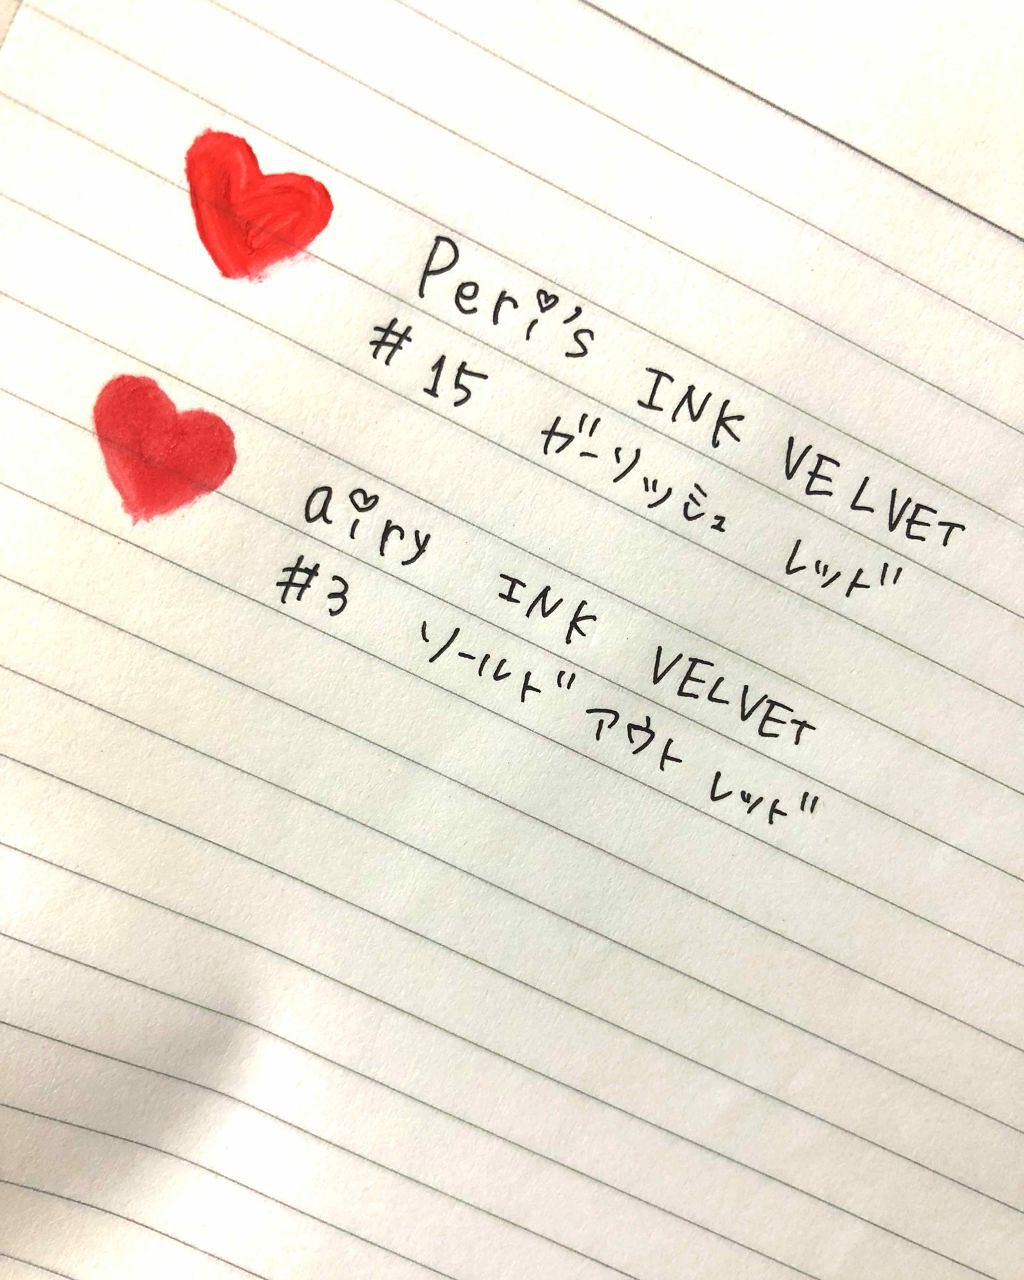 Peri's INK VELVET
#15 ガーリッシュ レッド
airy INK VELVET
#3 ソールドアウトレッド